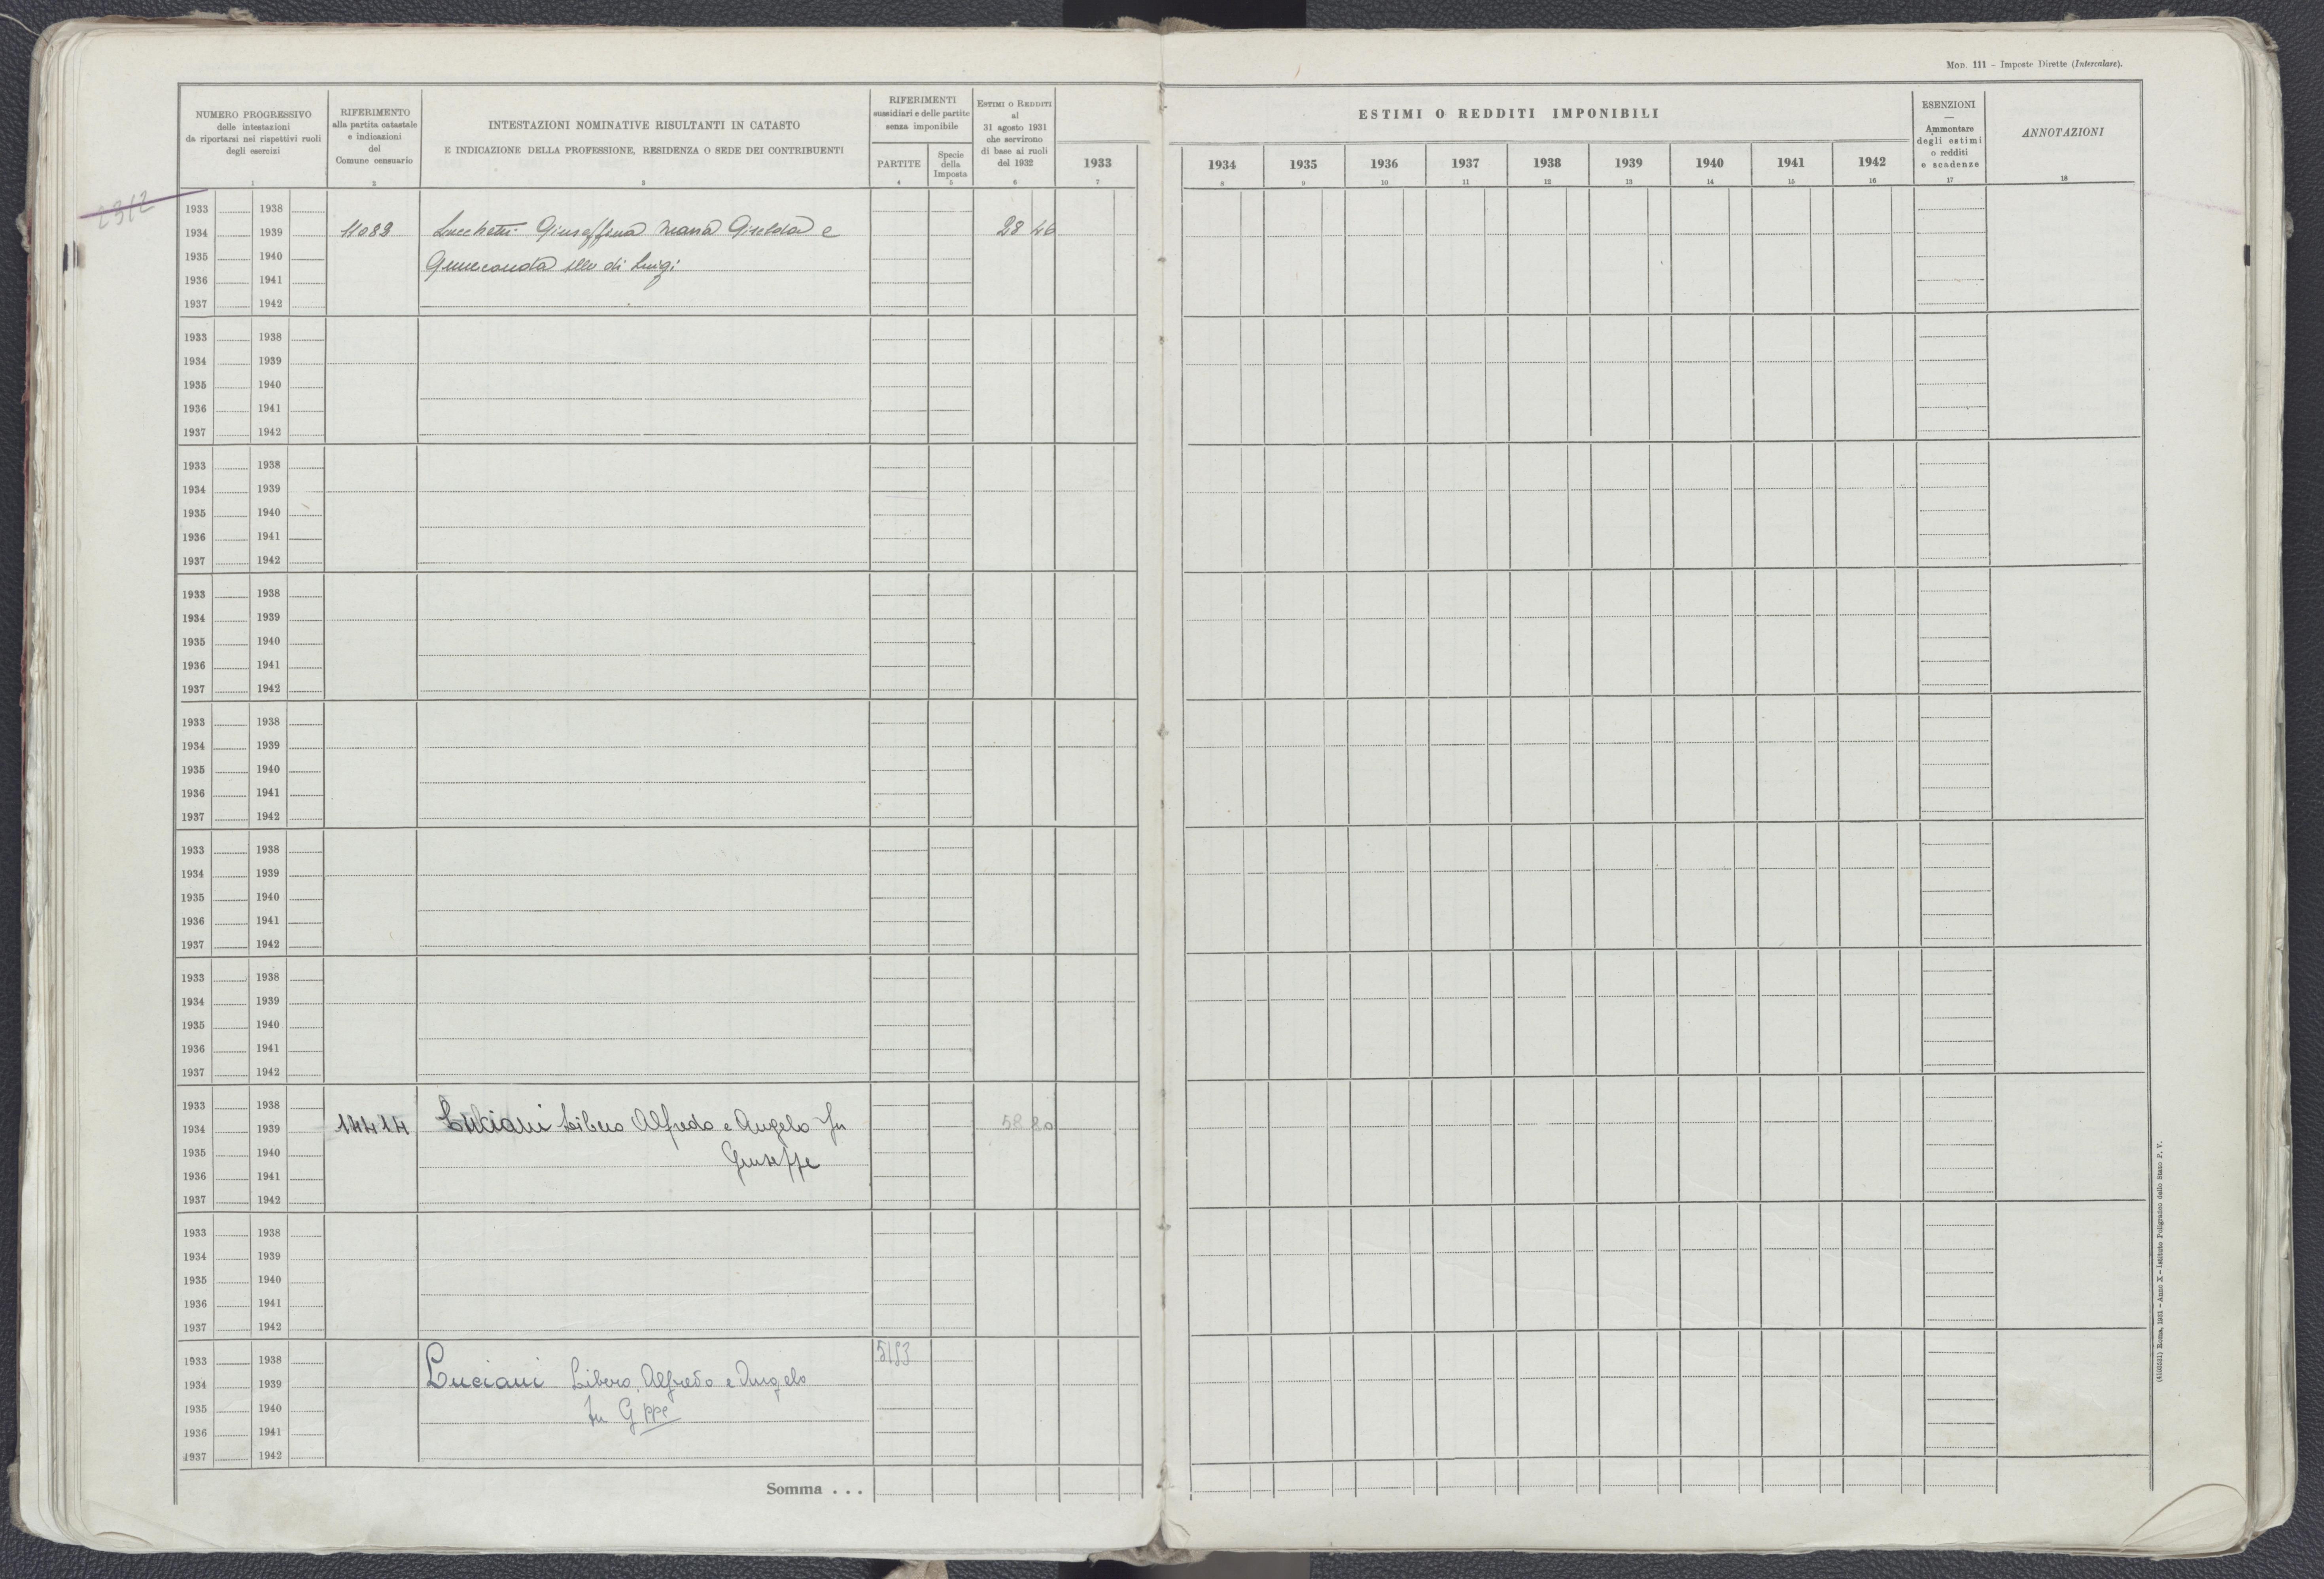 Mod. 111 - Imposte Dirette (Intercalare).
NUMERO PROGRESSIVO
delle intestazioni
da riportarsi nei rispettivi ruoli
degli esercizi
1
RIFERIMENTO
alla partita catastale
e indicazioni
del
Comune censuario
2
INTESTAZIONI NOMINATIVE RISULTANTI IN CATASTO
E INDICAZIONE DELLA PROFESSIONE, RESIDENZA O SEDE DEI CONTRIBUENTI
3
RIFERIMENTI
sussidiari e delle partite
senza imponibile
PARTITE
4
Specie
della
Imposta
5
Estimi o Redditi
al
31 agosto 1931
che servirono
di base ai ruoli
del 1932
6
1933
7
ESTIMI O REDDITI IMPONIBILI
1934 1935 1936 1937 1938 1939 1940 1941 1942
8 9 10 11 12 13 14 15 16
ESENZIONI
Ammontare
degli estimi
o redditi
e scadenze
17
ANNOTAZIONI
18
2312
1933 1938
1934 1939 11088 Lucchetti Giuseppina Maria Giselda e 28 46
1935 1940 di Luigi
1936 1941
1937 1942
1933 1938
1934 1939
1935 1940
1936 1941
1937 1942
1933 1938
1934 1939
1935 1940
1936 1941
1937 1942
1933 1938
1934 1939
1935 1940
1936 1941
1937 1942
1933 1938
1934 1939
1935 1940
1936 1941
1937 1942
1933 1938
1934 1939
1935 1940
1936 1941
1937 1942
1933 1938
1934 1939
1935 1940
1936 1941
1937 1942
1933 1938
1934 1939 14414 Luciani Libero Alfredo e Angelo fu 58 80
1935 1940 Giuseppe
1936 1941
1937 1942
1933 1938
1934 1939
1935 1940
1936 1941
1937 1942
1933 1938 5153
1934 1939 Luciani Libero, Alfredo e Angelo
1935 1940 fu Gppe
1936 1941
1937 1942
Somma . . .
Roma, 1931 - Anno X - Istituto Poligrafico dello Stato P. V.